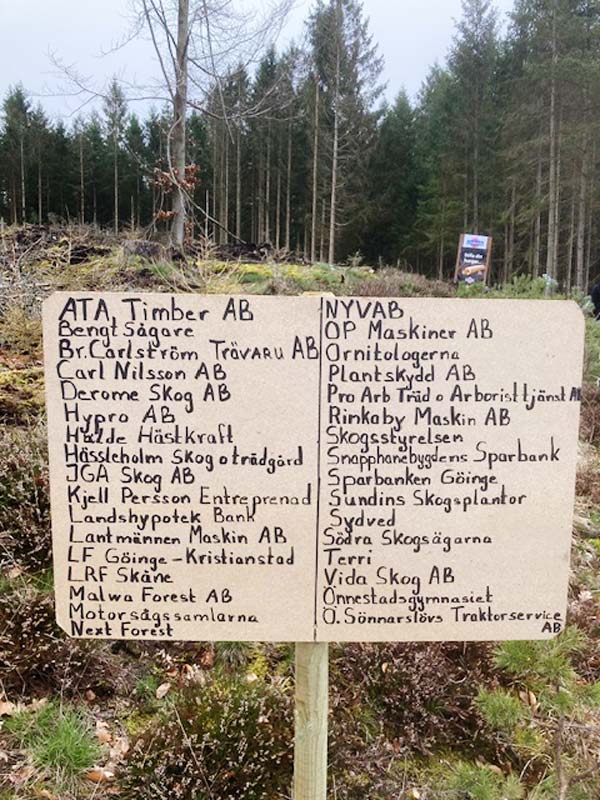 ATA Timber AB
Bengt Sågare
Br. Carlström Trävaru AB
Carl Nilsson AB
Derome Skog AB
Hypro AB
Halde Hästkraft
Hässleholm Skog o trädgård
JGA Skog AB
Kjell Persson Entreprenad
Landshypotek Bank
Lantmännen Maskin AB
LF Göinge - Kristianstad
LRF Skåne
Malwa Forest AB
Motorsågssamlarna
Next Forest
NYVAB
OP Maskiner AB
Ornitologerna
Plantskydd AB
Pro Arb Träd o Arboristtjänst AB
Rinkaby Maskin AB
Skogsstyrelsen
Snapphanebygdens Sparbank
Sparbanken Göinge
Sundins Skogsplantor
Sydved
Södra Skogsägarna
Terri
Vida Skog AB
Önnestadsgymnasiet
Ö. Sönnarslövs Traktorservice
AB